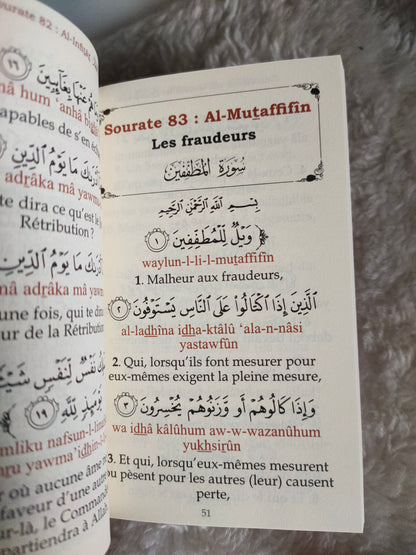 Sourate 82 : Al-Infitâr
عَنْهَا بِغَآئِبِينَ ١٦
nâ hum 'anhâ bi
capables de s'en
يَوْمُ ٱلدِّينِ
adrâka mâ yawm
te dira ce qu'est le
Rétribution ?
مَا يَوْمُ ٱلدِّينِ
nâ adrâka mâ yaw
une fois, qui te dir
ur de la Rétribution
نَفْسٌ لِّنَفْسٍ شَيْـًٔا
يَوْمَئِذٍ لِّلَّهِ ١٩
mliku nafsun-l-lina
ru yawma'idhin-l-l
où aucune âme n
faveur d'une autre
ur-là, le Command
partiendra à Allah
Sourate 83 : Al-Mutaffifîn
Les fraudeurs
سُورَةُ المُطَفِّفِين
بِسْمِ اللَّهِ الرَّحْمَنِ الرَّحِيمِ
وَيْلٌ لِّلْمُطَفِّفِينَ ١
waylun-l-li-l-mutaffifîn
1. Malheur aux fraudeurs,
ٱلَّذِينَ إِذَا ٱكْتَالُوا۟ عَلَى ٱلنَّاسِ يَسْتَوْفُونَ ٢
al-ladhîna idha-ktâlû 'ala-n-nâsi
yastawfûn
2. Qui, lorsqu'ils font mesurer pour
eux-mêmes exigent la pleine mesure,
وَإِذَا كَالُوهُمْ أَو وَّزَنُوهُمْ يُخْسِرُونَ ٣
wa idhâ kâlûhum aw-w-wazanûhum
yukhsirûn
3. Et qui, lorsqu'eux-mêmes mesurent
ou pèsent pour les autres (leur) causent
perte,
51